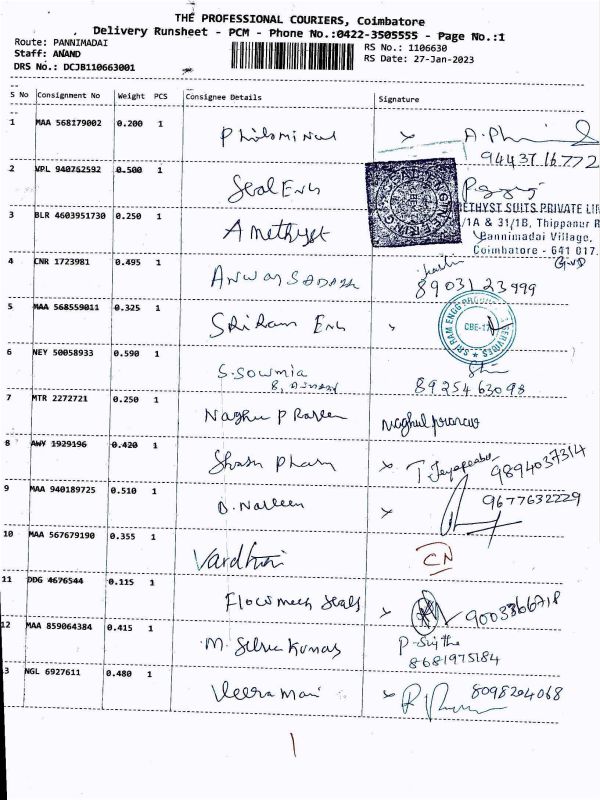 THE PROFESSIONAL COURIERS, Coimbatore
Delivery Runsheet - PCM - Phone No.:0422-3505555 - Page No.:1
Route: PANNIMADAI
RS No.: 1106630
Staff: ANAND
RS Date: 27-Jan-2023
DRS No.: DCJB110663001
S No Consignment No Weight PCS Consignee Details Signature
1 MAA 568179002 0.200 1 Philominal A.Ph
9443716772
2 VPL 940762592 0.500 1 Seal Eng
3 BLR 4603951730 0.250 1 Amethyst
METHYST SUITS PRIVATE LI
/1A & 31/1B, Thippanur R
Pannimadai Village,
Coimbatore - 641 017.
4 CNR 1723981 0.495 1 Anwar Sadath
8903123999
5 MAA 568559011 0.325 1 Sri Ram Eng
SRI RAM ENGG SERVICES
CBE-17
6 NEY 50058933 0.590 1 S.Sowmia
8925463098
7 MTR 2272721 0.250 1
8 AWY 1929196 0.420 1
9894037314
9 MAA 940189725 0.510 1 B. Naveen
9677632229
10 MAA 567679190 0.355 1 Vardhini CN
11 DDG 4676544 0.115 1 Flowmech Seals
9003366718
12 MAA 859064384 0.415 1 M. Selva Kumar
8681975184
3 NGL 6927611 0.480 1 Veeramani
8098204068